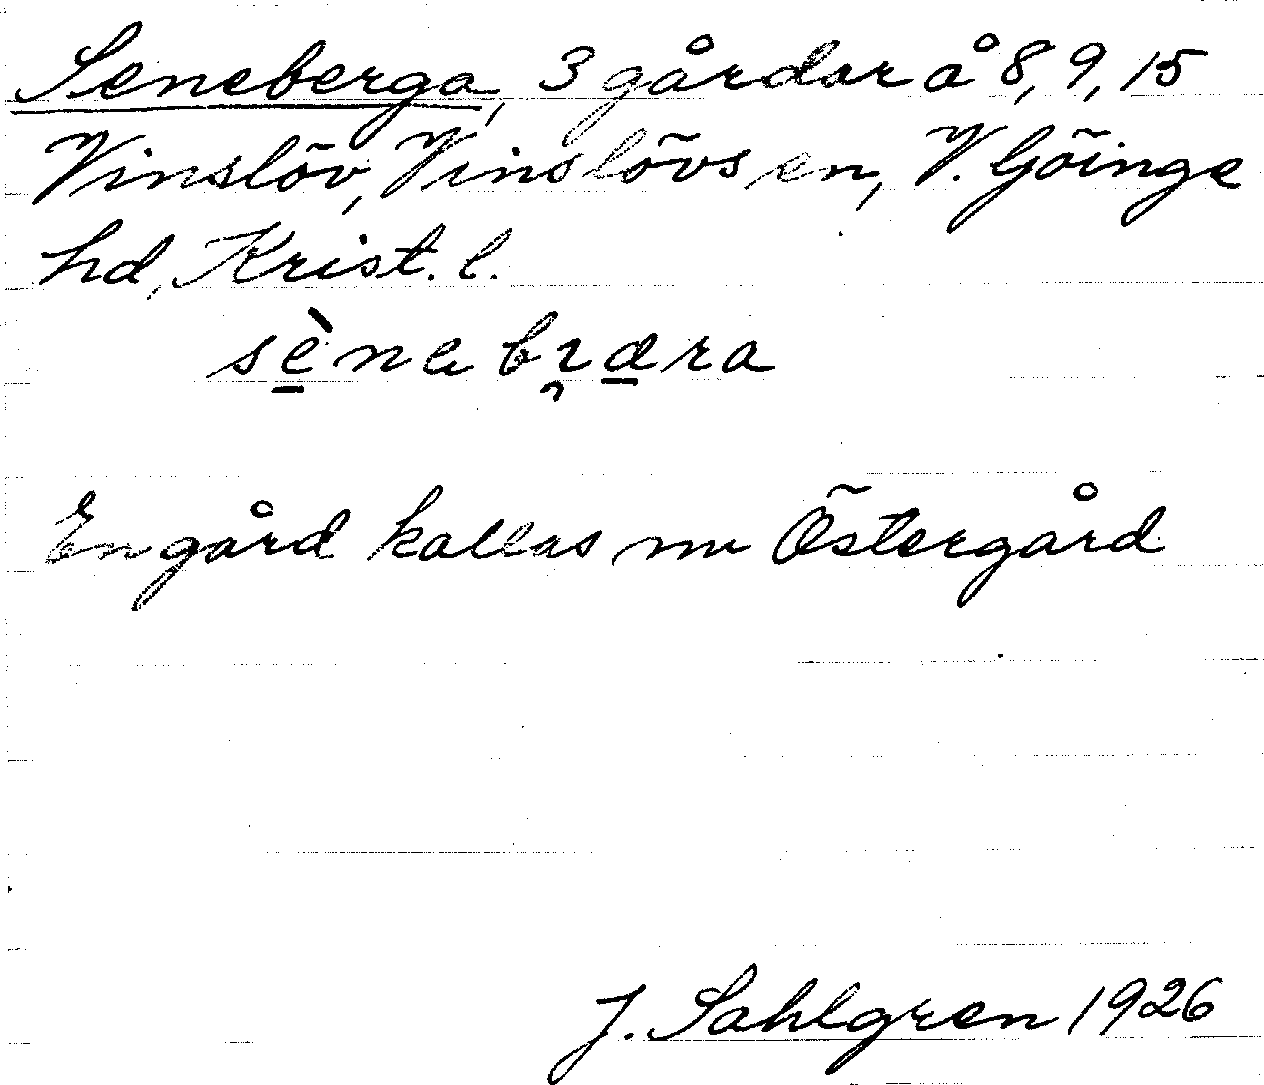 Seneberga, 3 gårdar å 8, 9, 15
Vinslöv, Vinslövs sn, V. Göinge
hd, Krist. l.
sènabræra
En gård kallas nu Östergård
J. Sahlgren 1926